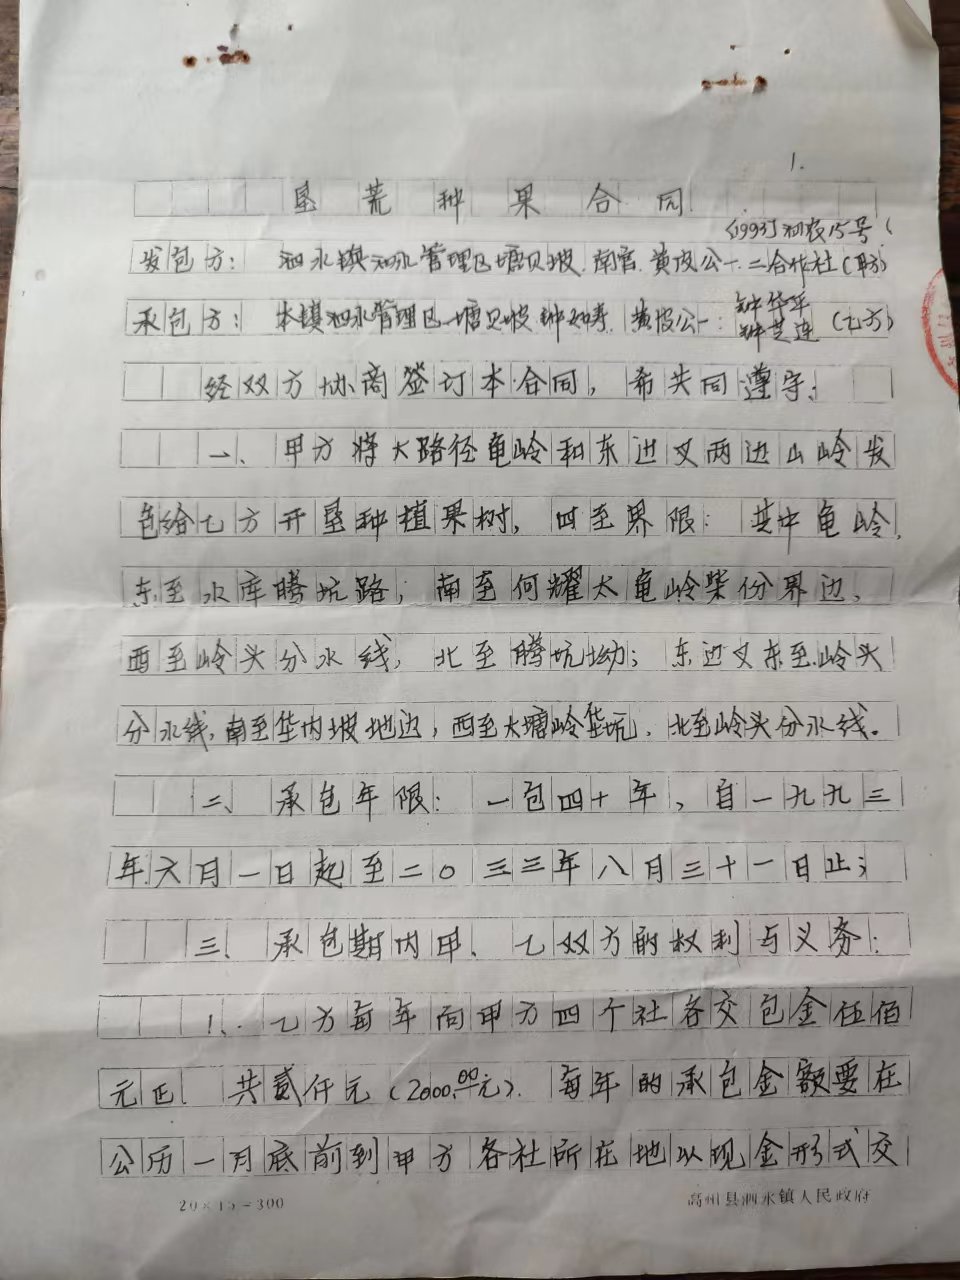 1.
垦荒种果合同
(1993)泗农15号
发包方: 泗水镇泗水管理区塘贝坡、南官、黄皮公一、二合作社(甲方)
承包方: 本镇泗水管理区塘贝坡钟如寿、黄皮公一: 钟华平 钟芝连 (乙方)
经双方协商签订本合同, 希共同遵守:
一、甲方将大路径龟岭和东边叉两边山岭发
包给乙方开垦种植果树, 四至界限: 其中龟岭,
东至水库腾坑路; 南至何耀太龟岭柴份界边,
西至岭头分水线, 北至腾坑坳; 东边叉东至岭头
分水线, 南至华内坡地边, 西至大塘岭华坑, 北至岭头分水线。
二、承包年限: 一包四十年, 自一九九三
年六月一日起至二〇三三年八月三十一日止;
三、承包期内甲、乙双方的权利与义务:
1、乙方每年向甲方四个社各交包金伍佰
元正 共贰仟元(2000.00元)。每年的承包金额要在
公历一月底前到甲方各社所在地以现金形式交
20×15=300
高州县泗水镇人民政府